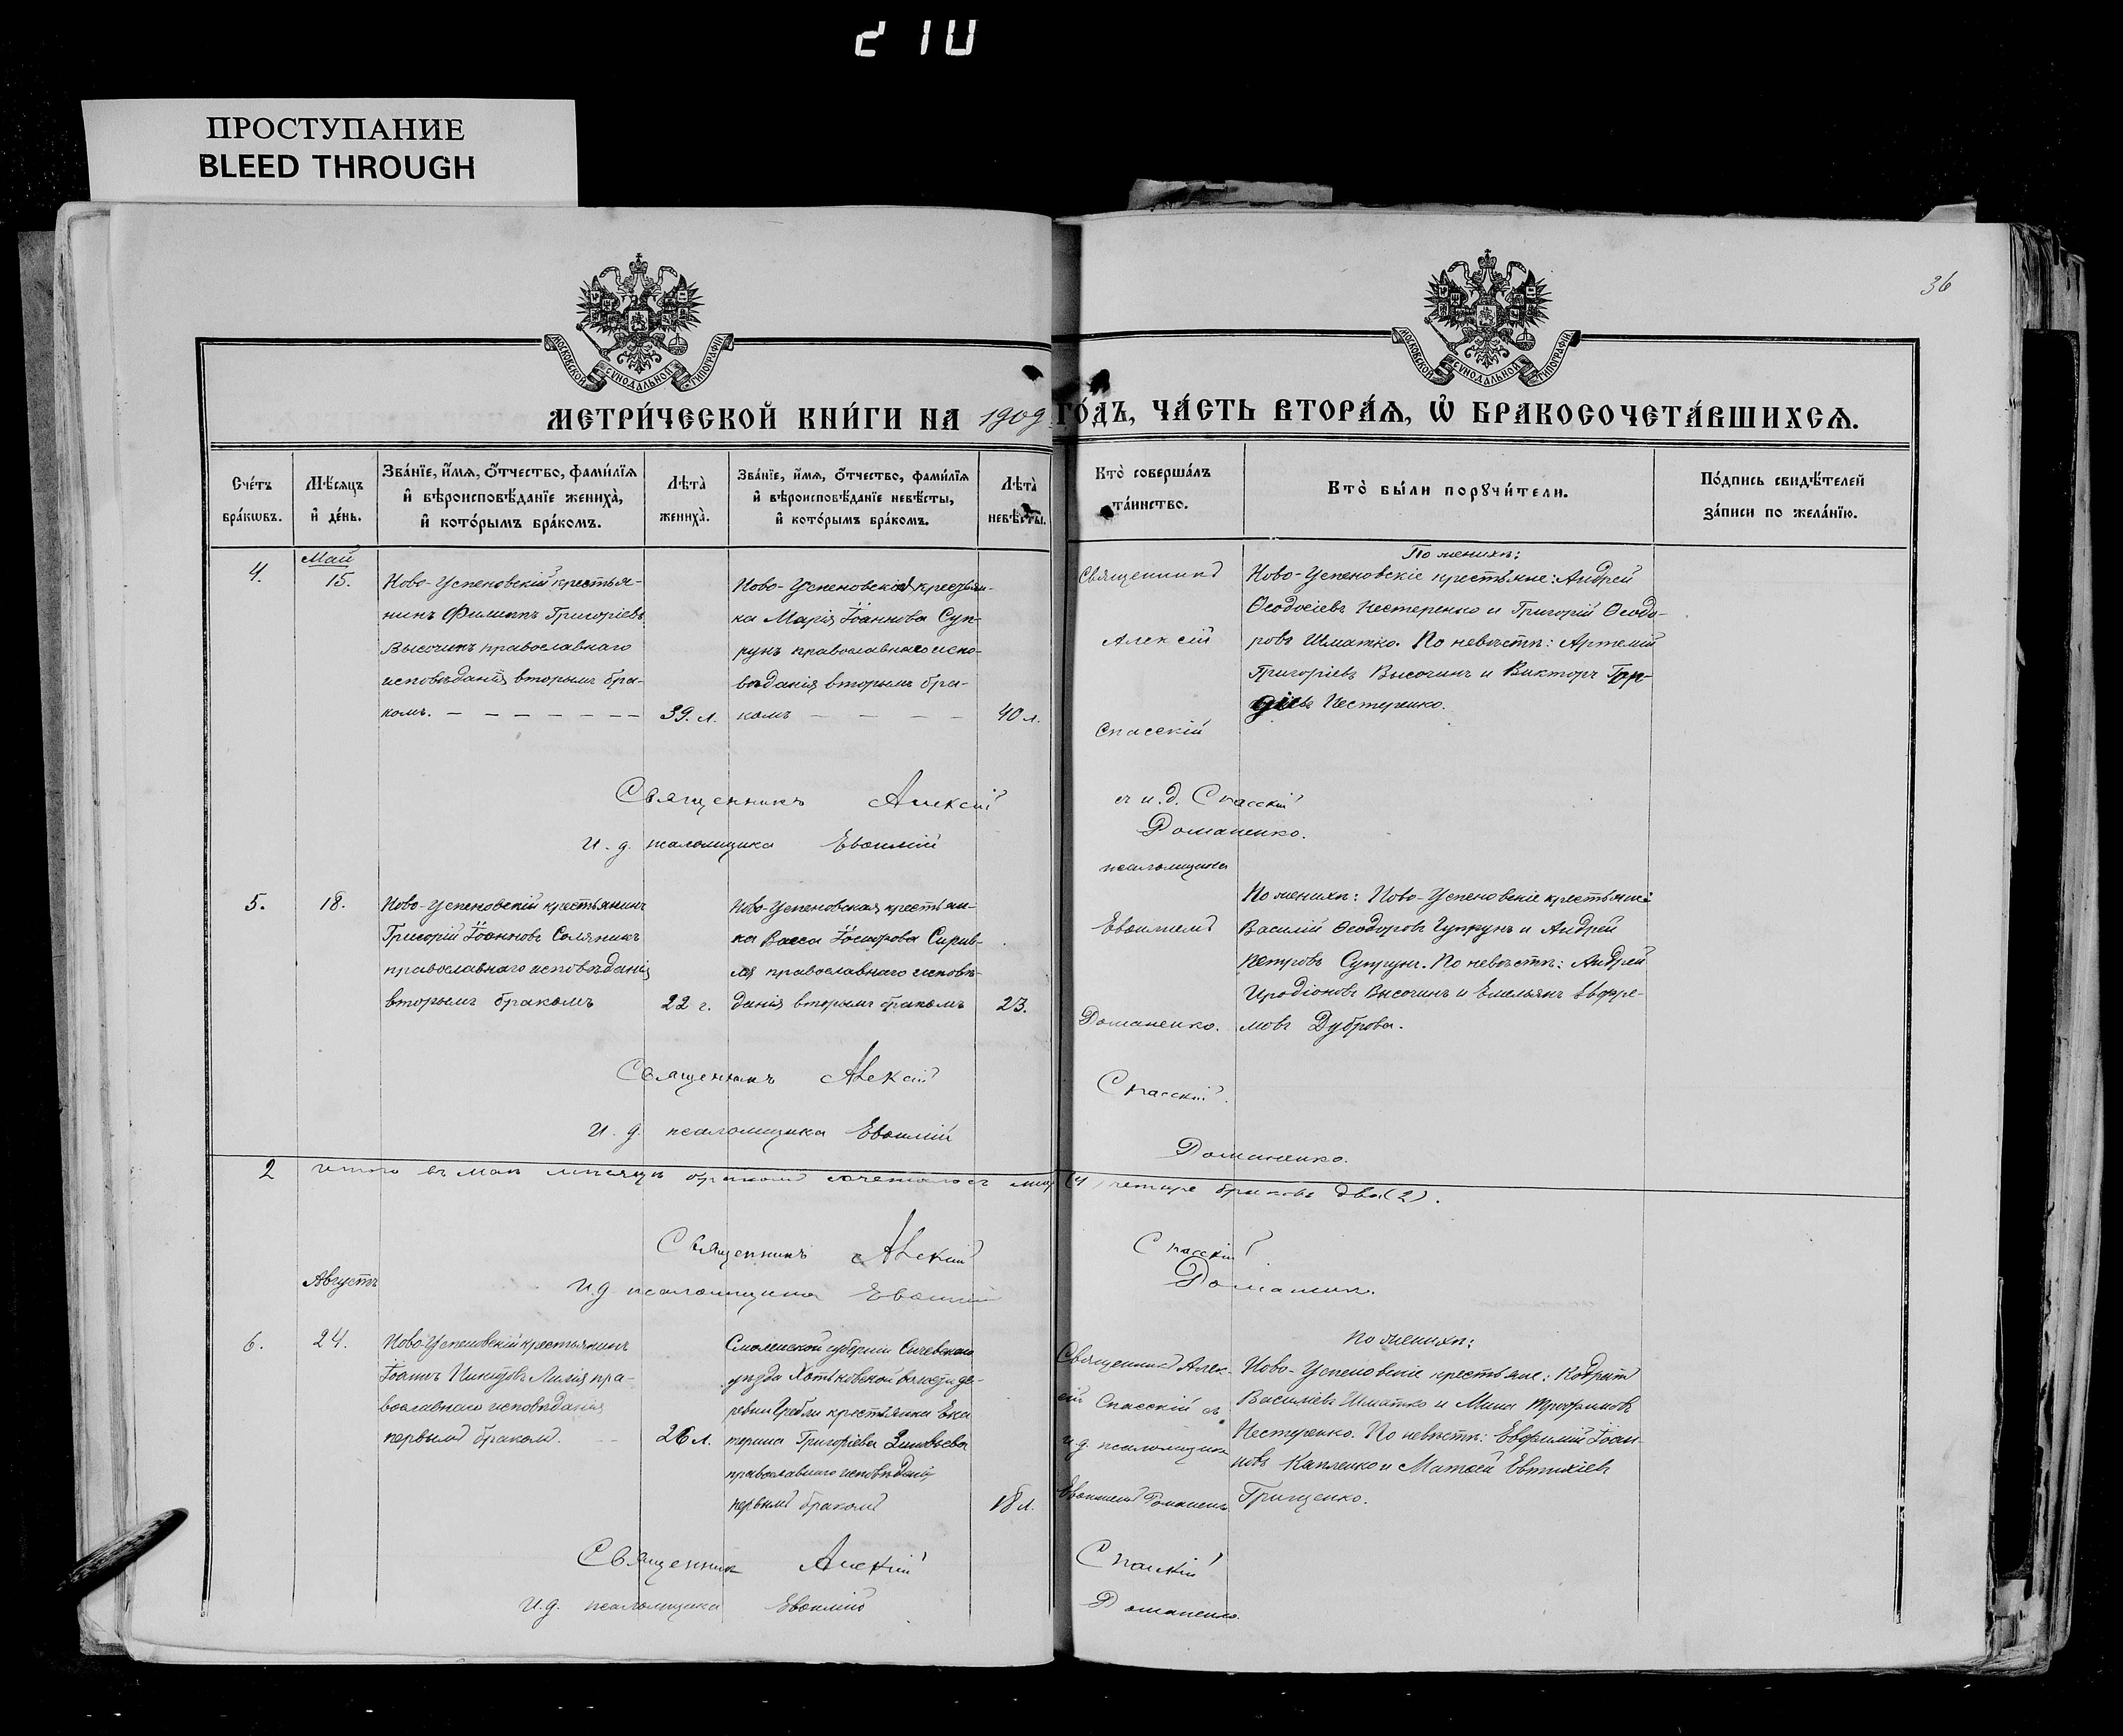 210
ПРОСТУПАНИЕ
BLEED THROUGH
36
МОСКОВСКОЙ СѴНОДАЛЬНОЙ ТИПОГРАФІИ
МОСКОВСКОЙ СѴНОДАЛЬНОЙ ТИПОГРАФІИ
МЕТРИ́ЧЕСКОЙ КНИ́ГИ НА 1909 ГО́ДЪ, ЧА́СТЬ ВТОРА́Ѧ, Ѽ БРАКОСОЧЕТА́ВШИХСѦ.
Сче́тъ
бра́кѡвъ.
Мѣ́сѧцъ
и҆ де́нь.
Зва́нїе, и҆́мѧ, ѻ҆́тчество, фами́лїѧ
и҆ вѣроисповѣ́данїе жениха̀,
и҆ кото́рымъ бра́комъ.
Лѣта̀
жениха̀.
Зва́нїе, и҆́мѧ, ѻ҆́тчество, фами́лїѧ
и҆ вѣроисповѣ́данїе невѣ́сты,
и҆ кото́рымъ бра́комъ.
Лѣта̀
невѣ́сты.
Кто̀ соверша́лъ
та́инство.
Кто̀ бы́ли порꙋчи́тели.
По́дпись свидѣ́телей
за́писи по жела́нїю.
4.
Май
15.
Ново-Успеновскій крестья-
нинъ Филиппъ Григоріевъ
Высочинъ православнаго
исповѣданія вторымъ бра-
комъ.
39. л.
Ново-Успеновская крестьян-
ка Марія Іоаннова Суп-
рунъ православнаго испо-
вѣданія вторымъ бра-
комъ
40 л.
Священникъ
Алексій
Спасскій
съ и.д.
псаломщика
Евѳиміемъ
Доманенко.
По женихѣ:
Ново-Успеновскіе крестьяне: Андрей
Ѳеодосіевъ Нестеренко и Григорій Ѳеодо-
ровъ Шматко. По невѣстѣ: Артемій
Григоріевъ Высочинъ и Викторъ
Нестеренко.
Священникъ Алексій Спасскій
И. д. псаломщика Евѳимій Доманенко.
5.
18.
Ново-Успеновскій крестьянинъ
Григорій Іоанновъ Соляникъ
православнаго исповѣданія
вторымъ бракомъ
22 г.
Ново-Успеновская крестьян-
ка Васса
православнаго исповѣ-
данія вторымъ бракомъ
23.
По женихѣ: Ново-Успеновскіе крестьяне:
Василій Ѳеодоровъ и Андрей
Петровъ Супрунъ. По невѣстѣ: Андрей
Иродіоновъ Высочинъ и Емельянъ Евфре-
мовъ Дуброва.
Священникъ Алексій Спасскій.
И. д. псаломщика Евѳимій Доманенко.
2 Итого въ маѣ мѣсяцѣ бракомъ сочеталось лицъ (4) четыре браковъ два (2).
Священникъ Алексій Спасскій
И.д. псаломщика Евѳимій
Августъ
6.
24.
Ново-Успеновскій крестьянинъ
Іоаннъ пра-
вославнаго исповѣданія
первымъ бракомъ.
26 л.
Смоленской губерніи Сычевскаго
уѣзда Хотьковской волости де-
ревни крестьянка Ека
терина Григоріева Зиновьева
православнаго исповѣданія
первымъ бракомъ
18 л.
Священникъ Алек-
сій Спасскій съ
и.д. псаломщика
Евѳиміемъ
По женихѣ:
Ново-Успеновскіе крестьяне: Кодратъ
Василіевъ Шматко и Мина Трофимовъ
Нестеренко. По невѣстѣ: Евфимій Іоан-
новъ Капленко и Матѳей Евтихіевъ
Грищенко.
Священникъ Алексій Спасскій
И.д. псаломщика Евѳимій Доманенко.